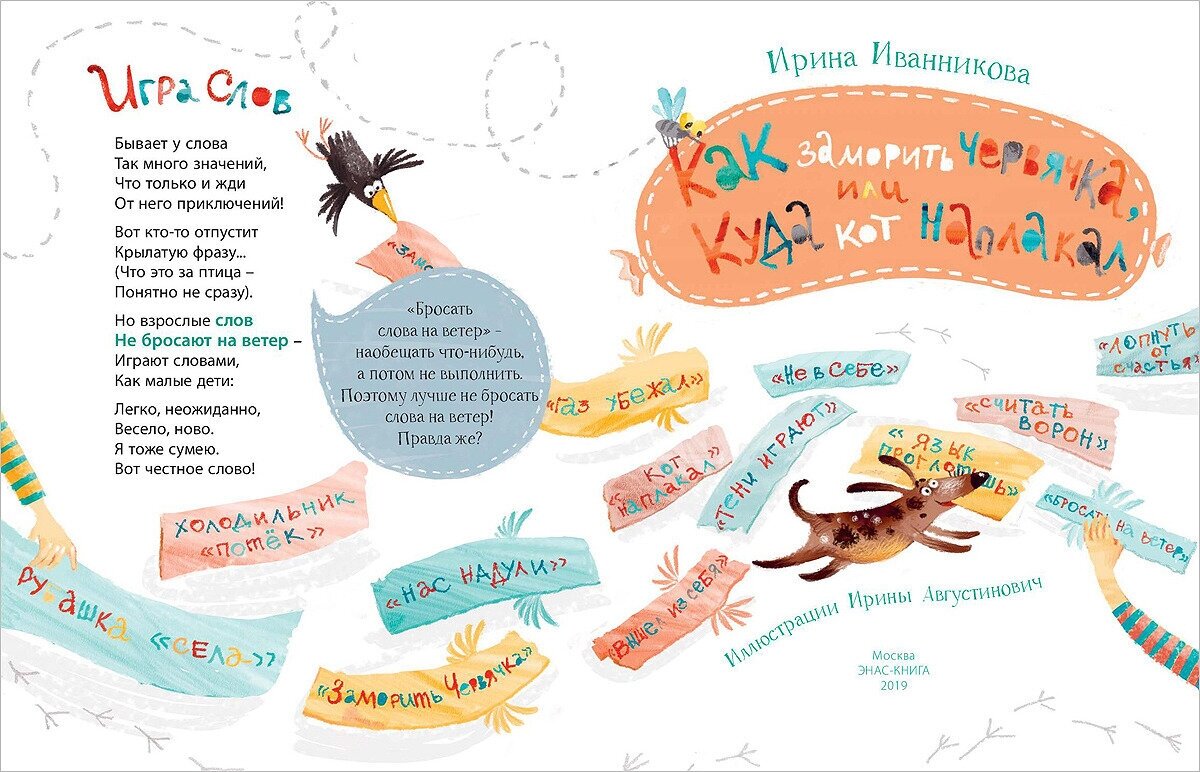 Игра Слов
Бывает у слова
Так много значений,
Что только и жди
От него приключений!
Вот кто-то отпустит
Крылатую фразу...
(Что это за птица –
Понятно не сразу).
Но взрослые слов
Не бросают на ветер –
Играют словами,
Как малые дети:
Легко, неожиданно,
Весело, ново.
Я тоже сумею.
Вот честное слово!
«Бросать
слова на ветер» –
наобещать что-нибудь,
а потом не выполнить.
Поэтому лучше не бросать
слова на ветер!
Правда же?
холодильник
«потёк»
«село»
«нас надули»
«Заморить Червячка»
Ирина Иванникова
Как заморить червячка,
или
Куда кот наплакал
«газ убежал»
«Не в себе»
«Лопнуть
от
счастья»
«считать
ворон»
«кот
наплакал»
«Тени играют»
«язык
из себя»
на ветер»
Иллюстрации Ирины Августинович
Москва
ЭНАС-КНИГА
2019